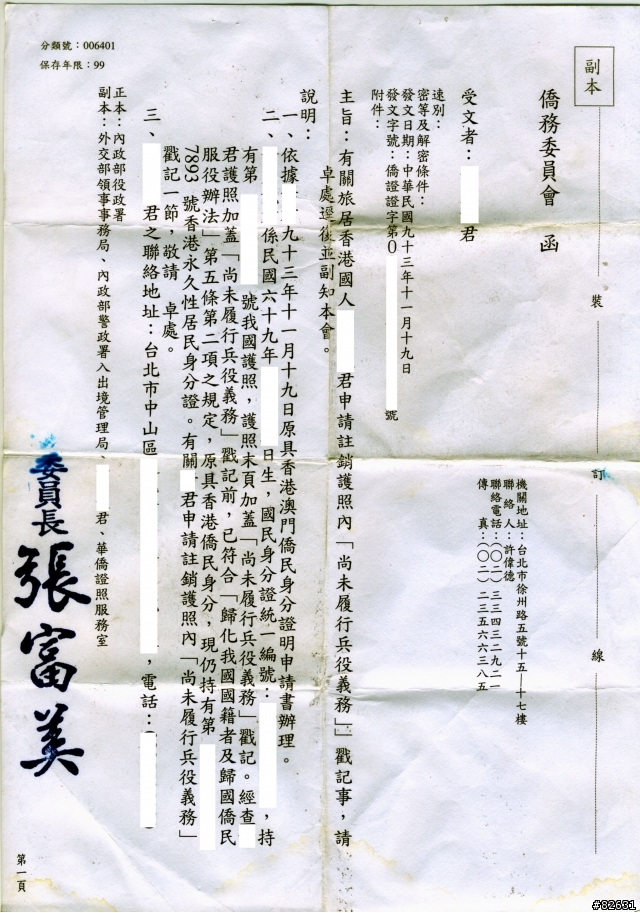 副本
裝
訂
線
僑務委員會 函
機關地址：台北市徐州路五號十五—十七樓
聯絡人：許偉德
聯絡電話：(〇二)三三四三二九二一
傳 真：(〇二)二三五六六三八五
受文者： 君
速別：
密等及解密條件：
發文日期：中華民國九十三年十一月十九日
發文字號：僑證證字第0 號
附件：
主旨：有關旅居香港國人 君申請註銷護照內「尚未履行兵役義務」戳記事，請
卓處逕復並副知本會。
說明：
一、依據 九十三年十一月十九日原具香港澳門僑民身分證明申請書辦理。
二、 係民國六十九年 日生，國民身分證統一編號： ，持
有第 號我國護照，護照末頁加蓋「尚未履行兵役義務」戳記。經查
君護照加蓋「尚未履行兵役義務」戳記前，已符合「歸化我國國籍者及歸國僑民
服役辦法」第五條第二項之規定，原具香港僑民身分，現仍持有第
7893 號香港永久性居民身分證。有關 君申請註銷護照內「尚未履行兵役義務」
戳記一節，敬請 卓處。
三、 君之聯絡地址：台北市中山區 ，電話：0
正本：內政部役政署
副本：外交部領事事務局、內政部警政署入出境管理局、 君、華僑證照服務室
委員長 張富美
分類號：006401
保存年限：99
第一頁
#82631